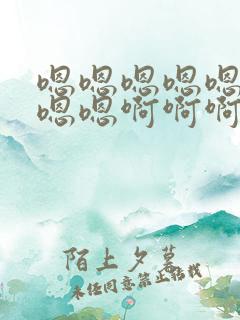 嗯嗯嗯嗯嗯
嗯嗯啊啊啊
陌上夕暮
未经同意禁止转载